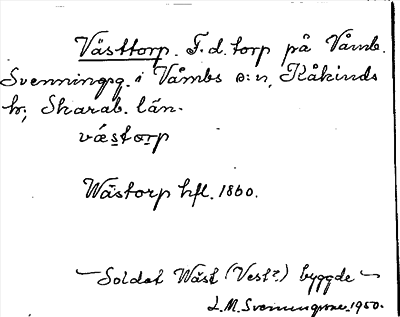 Västtorp. F.d. torp på Våmb.
Svenningsg. i Våmbs s:n, Kåkinds
h:, Skarab. län.
væstorp
Wästorp hfl. 1860.
— Soldat Wäst (Vest?) byggde —
L.M. Svenungsson. 1950.